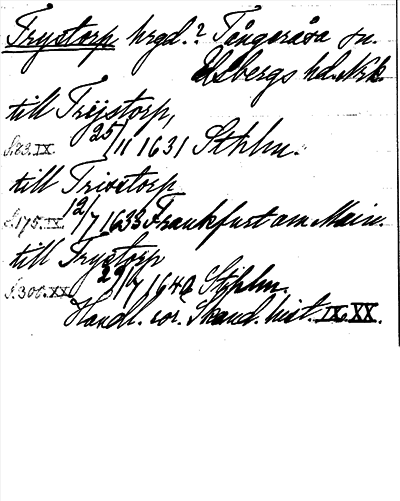 Trystorp hrgd.? Tångeråsa sn.
Edsbergs hd. Nrk.
till Trijstorp,
S.83.IX. 25/11 1631 Sthlm.
till Tristorp
S.175.IX. 12/7 1633 Frankfurt am Main.
till Trystorp
S.308.XX. 29/7 1640 Sthlm.
Handl. rör. Skand. hist. IX. XX.